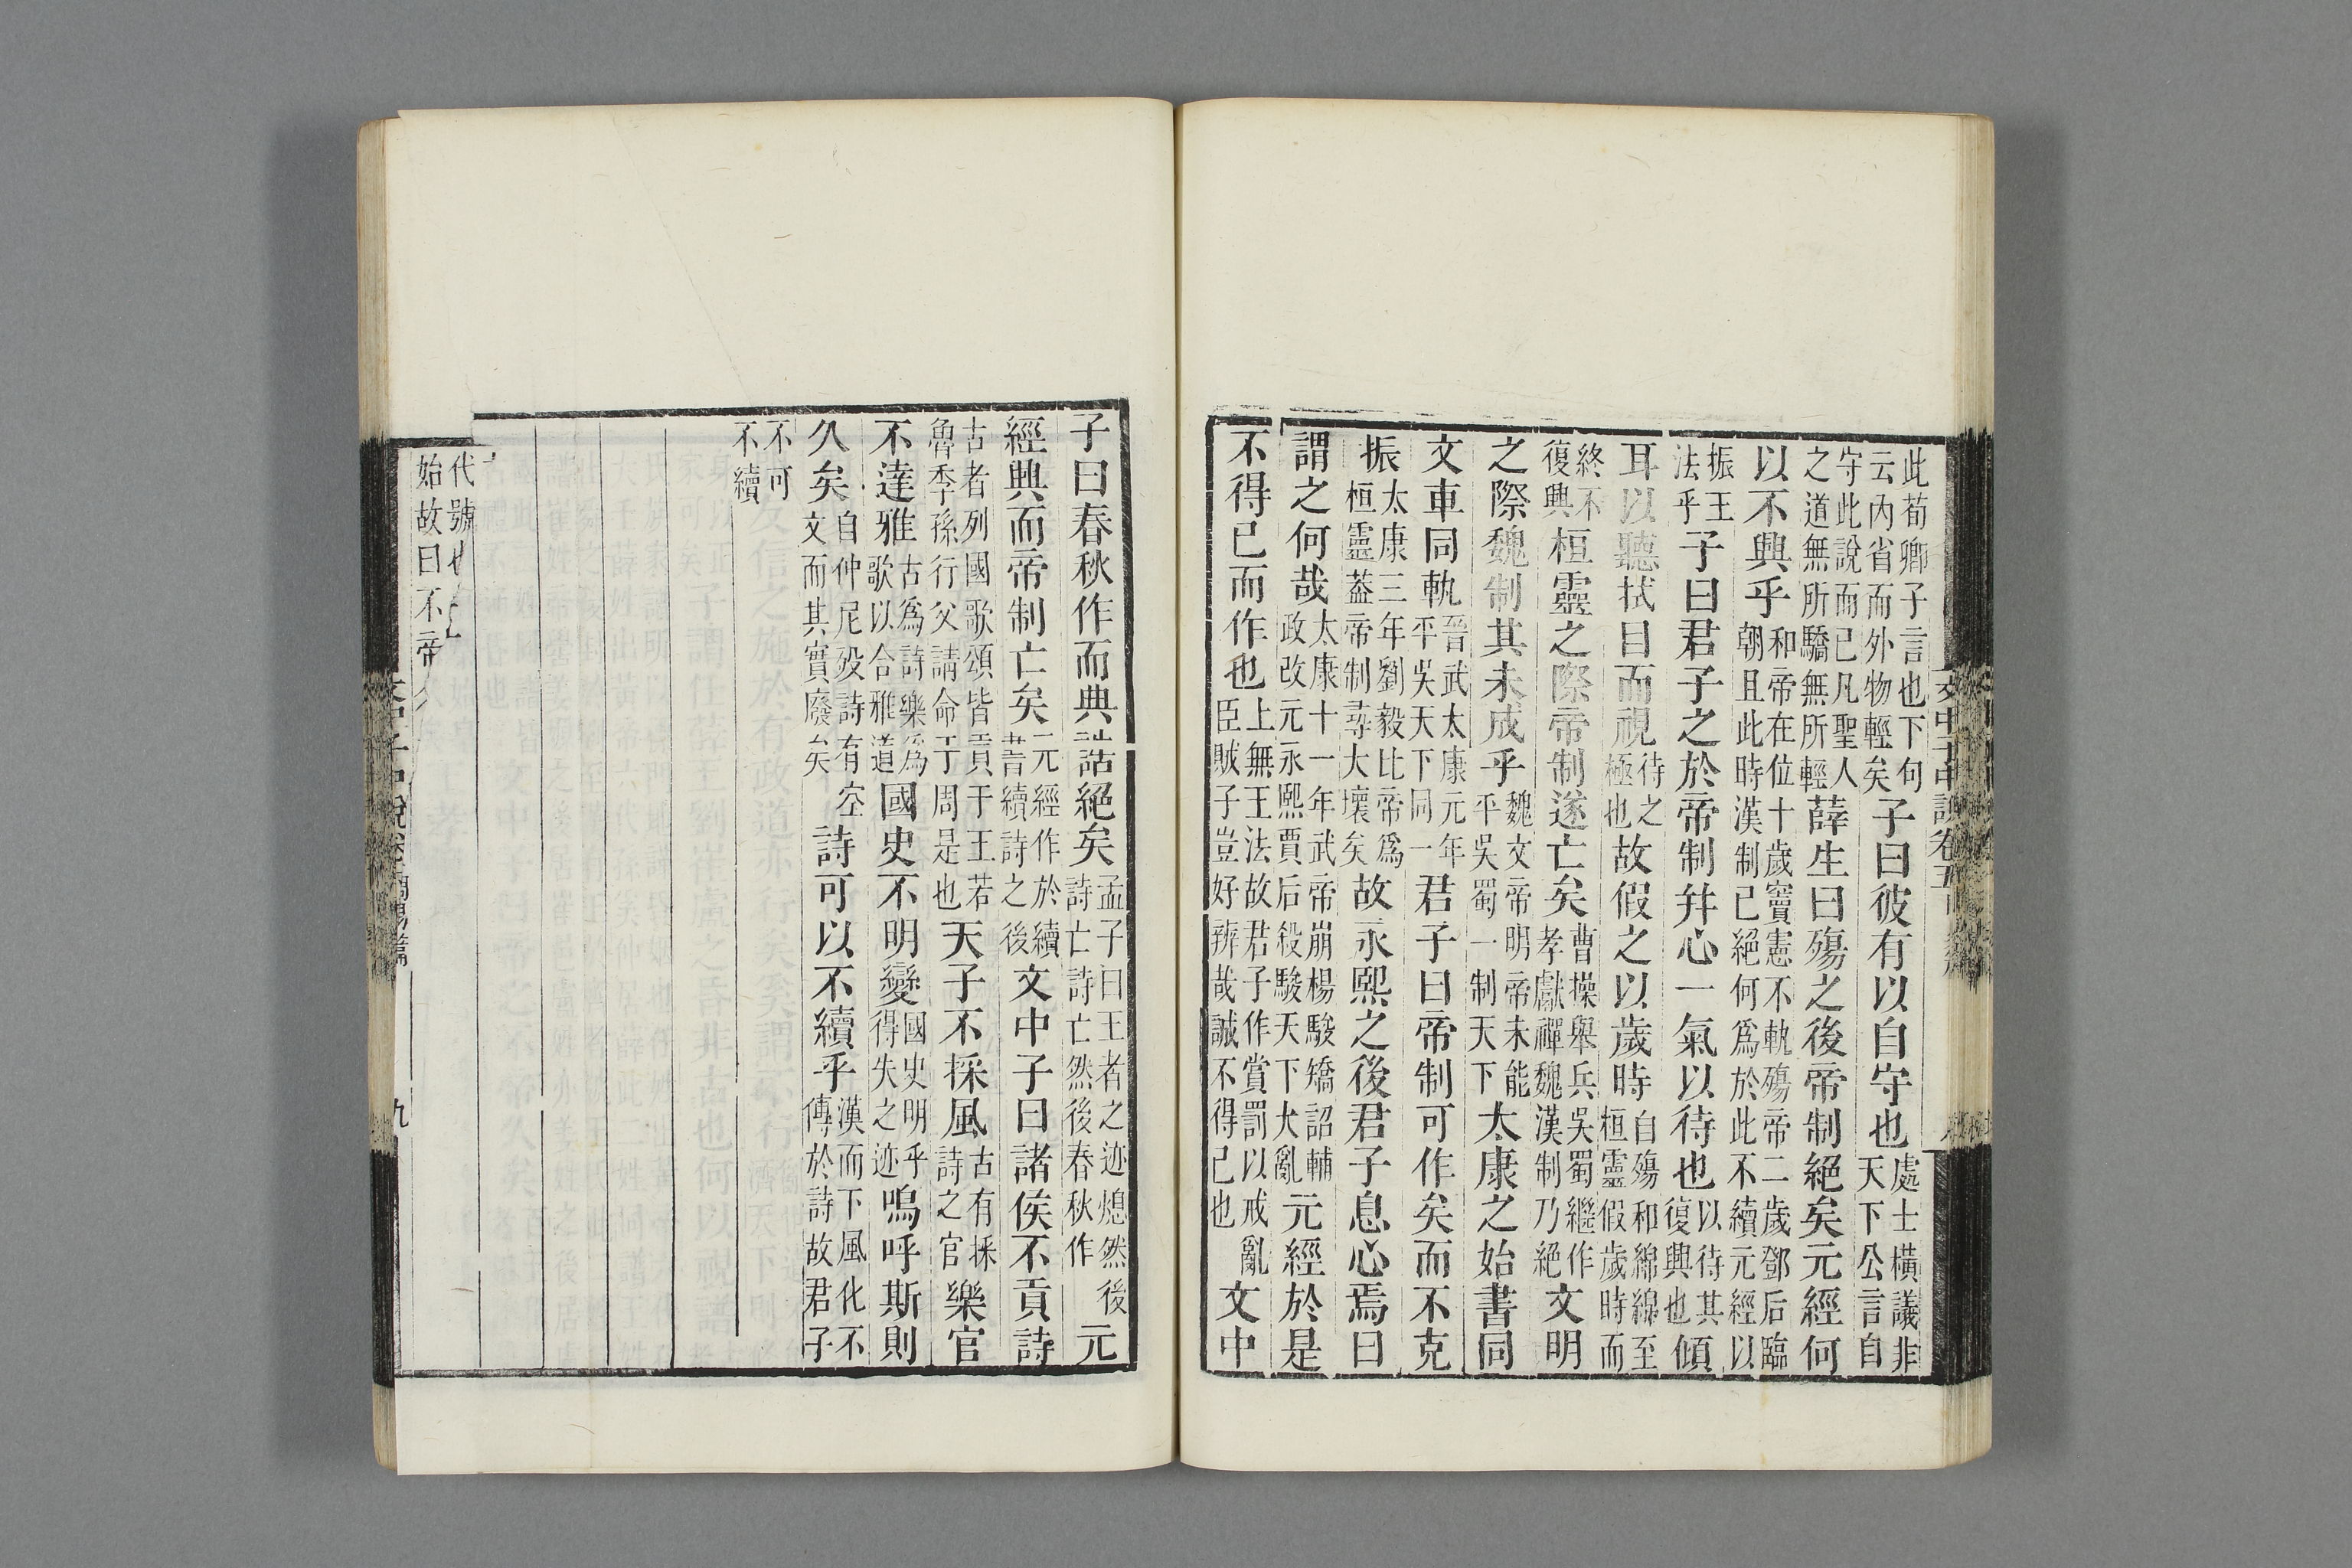 此荀卿子言也下句
云內省而外物輕矣子曰彼有以自守也處士橫議非
天下公言自
守此說而已凡聖人
之道無所驕無所輕薛生曰殤之後帝制絕矣元經何
以不興乎和帝在位十歲竇憲不軌殤帝二歲鄧后臨
朝且此時漢制已絕何爲於此不續元經以
振王
法乎子曰君子之於帝制并心一氣以待也以待其
復興也傾
耳以聽拭目而視待之
極也故假之以歲時自殤和綿綿至
桓靈假歲時而
終不
復興桓靈之際帝制遂亡矣曹操舉兵吳蜀繼作
孝獻禪魏漢制乃絕文明
之際魏制其未成乎魏文帝明帝未能
平吳蜀一制天下太康之始書同
文車同軌晉武太康元年
平吳天下同一君子曰帝制可作矣而不克
振太康三年劉毅比帝爲
桓靈蓋帝制尋大壞矣故永熙之後君子息心焉曰
謂之何哉太康十一年武帝崩楊駿矯詔輔
政改元永熙賈后殺駿天下大亂元經於是
不得已而作也上無王法故君子作賞罰以戒亂
臣賊子豈好辨哉誠不得已也文中
子曰春秋作而典誥絕矣孟子曰王者之迹熄然後
詩亡詩亡然後春秋作元
經興而帝制亡矣元經作於續
書續詩之後文中子曰諸侯不貢詩
古者列國歌頌皆貢于王若
魯季孫行父請命于周是也天子不採風古有採
詩之官樂官
不達雅古爲詩樂爲
歌以合雅道國史不明變國史明乎
得失之迹嗚呼斯則
久矣自仲尼歿詩有空
文而其實廢矣詩可以不續乎漢而下風化不
傳於詩故君子
不可
不續
文中子中說卷五問易篇
九
代號
始故曰不帝